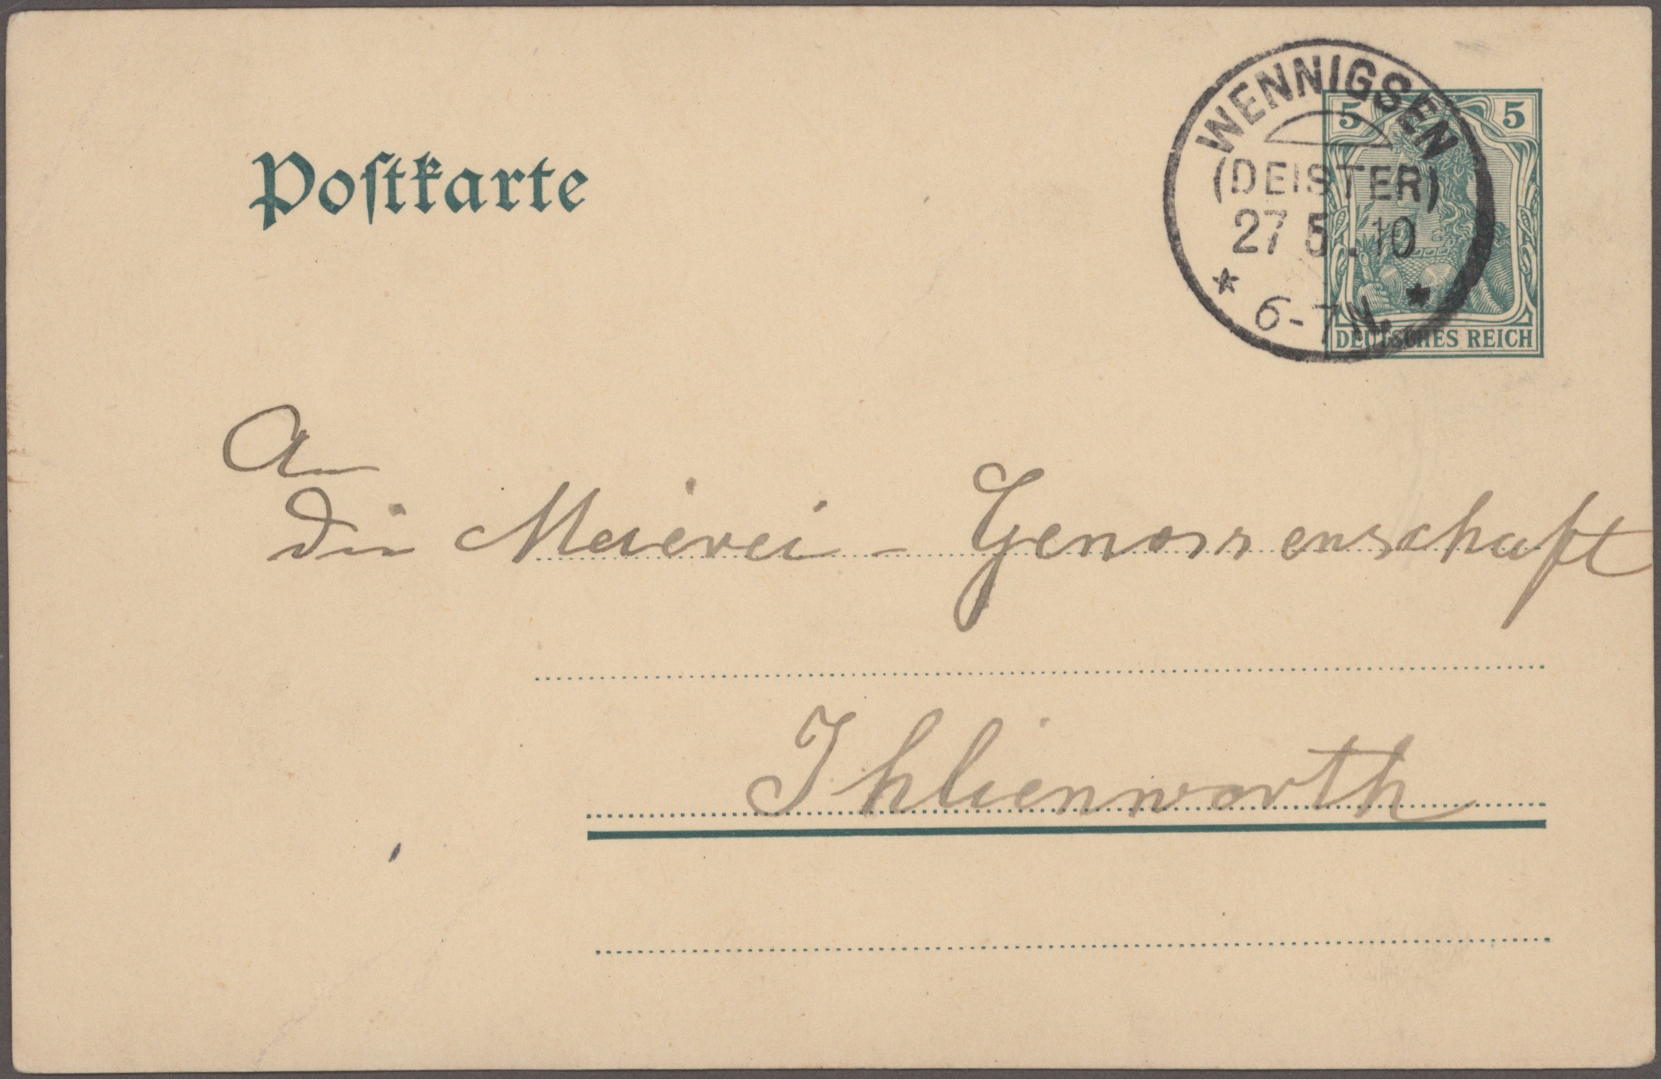 Postkarte
WENNIGSEN
(DEISTER)
27 5.10
* 6-7 N. *
5 5
DEUTSCHES REICH
An
die Meierei - Genossenschaft
Ihlienworth